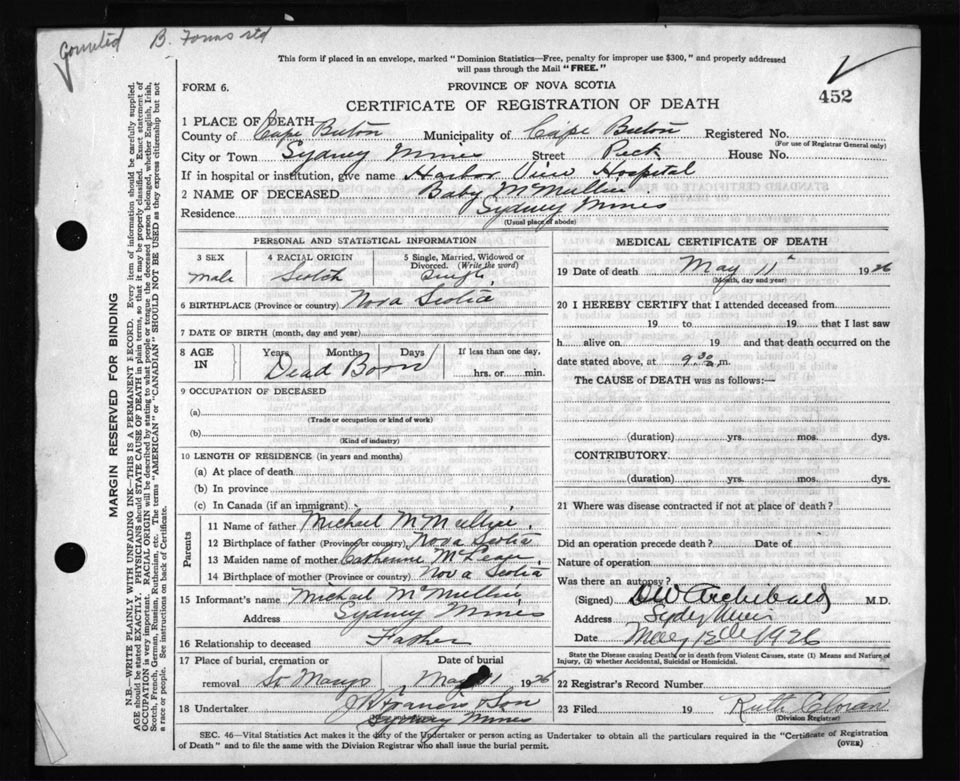 B. Forms std
This form if placed in an envelope, marked "Dominion Statistics—Free, penalty for improper use $300," and properly addressed
will pass through the Mail "FREE."
FORM 6.
PROVINCE OF NOVA SCOTIA
452
CERTIFICATE OF REGISTRATION OF DEATH
1 PLACE OF DEATH—
County of Cape Breton Municipality of Cape Breton Registered No.
(For use of Registrar General only)
City or Town Sydney Mines Street Peck House No.
If in hospital or institution, give name Harbor View Hospital
2 NAME OF DECEASED Baby McMullin
Residence Sydney Mines
(Usual place of abode)
PERSONAL AND STATISTICAL INFORMATION
3 SEX 4 RACIAL ORIGIN 5 Single, Married, Widowed or
Divorced. (Write the word)
male Scotch Single
6 BIRTHPLACE (Province or country) Nova Scotia
7 DATE OF BIRTH (month, day and year)
8 AGE IN Years Months Days If less than one day,
Dead Born hrs. or min.
9 OCCUPATION OF DECEASED
(a)
(Trade or occupation or kind of work)
(b)
(Kind of industry)
10 LENGTH OF RESIDENCE (in years and months)
(a) At place of death
(b) In province
(c) In Canada (if an immigrant)
Parents
11 Name of father Michael McMullin
12 Birthplace of father (Province or country) Nova Scotia
13 Maiden name of mother Catherine
14 Birthplace of mother (Province or country) Nova Scotia
15 Informant's name Michael McMullin
Address Sydney Mines
16 Relationship to deceased Father
17 Place of burial, cremation or Date of burial
removal St Marys May 11 1926
18 Undertaker J R Francis & Son
Sydney Mines
MEDICAL CERTIFICATE OF DEATH
19 Date of death May 11th 1926
(Month, day and year)
20 I HEREBY CERTIFY that I attended deceased from
19 to 19 that I last saw
h alive on 19 and that death occurred on the
date stated above, at 9.30 a.m.
The CAUSE of DEATH was as follows:—
(duration) yrs. mos. dys.
CONTRIBUTORY
(duration) yrs. mos. dys.
21 Where was disease contracted if not at place of death?
Did an operation precede death? Date of
Nature of operation
Was there an autopsy?
(Signed) DW Archibald M.D.
Address Sydney Mines
Date May 12th 1926
State the Disease causing Death, or in death from Violent Causes, state (1) Means and Nature of
Injury, (2) whether Accidental, Suicidal or Homicidal.
22 Registrar's Record Number
23 Filed 19 Ruth Cloran
(Division Registrar)
SEC. 46—Vital Statistics Act makes it the duty of the Undertaker or person acting as Undertaker to obtain all the particulars required in the "Certificate of Registration
of Death" and to file the same with the Division Registrar who shall issue the burial permit.
(OVER)
MARGIN RESERVED FOR BINDING
N.B.—WRITE PLAINLY WITH UNFADING INK—THIS IS A PERMANENT RECORD. Every item of information should be carefully supplied.
AGE should be stated EXACTLY. PHYSICIANS should STATE CAUSE OF DEATH in plain terms, so that it may be properly classified. Exact statement of
OCCUPATION is very important. RACIAL ORIGIN will be described by stating to what people or tongue the deceased person belonged, whether English, Irish,
Scotch, French, German, Russian, Ruthenian, etc. The terms "AMERICAN" or "CANADIAN" SHOULD NOT BE USED as they express citizenship but not
a race or people. See instructions on back of Certificate.